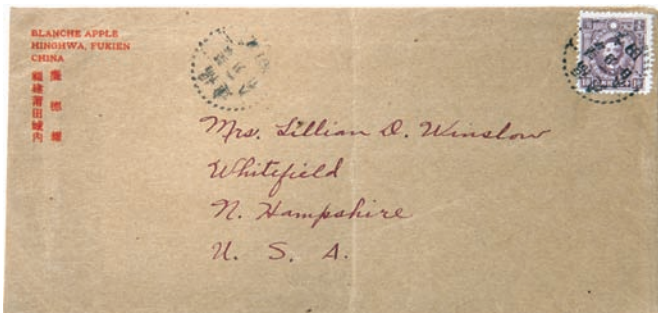 BLANCHE APPLE
HINGHWA, FUKIEN
CHINA
福建莆田城內
Mrs. Lillian D. Winslow
Whitefield
N. Hampshire
U. S. A.